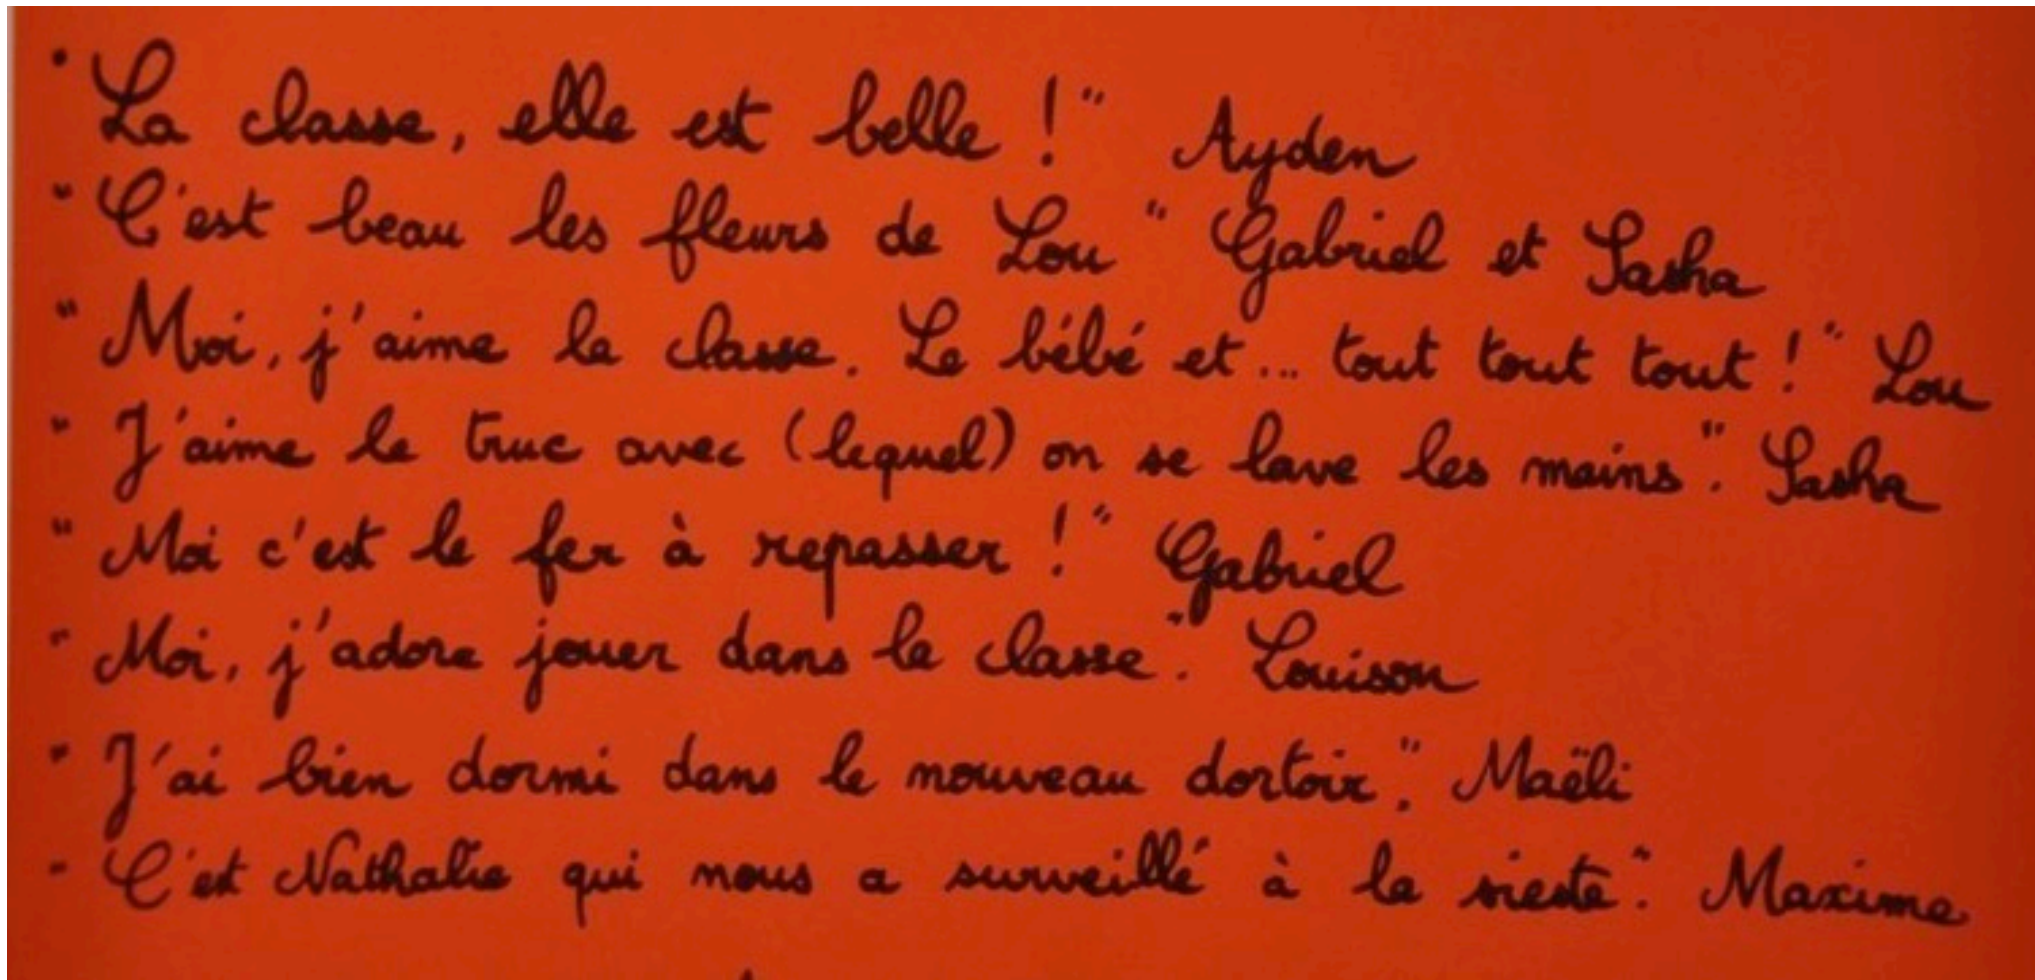 "La classe, elle est belle !" Ayden
"C'est beau les fleurs de Lou" Gabriel et Sasha
"Moi, j'aime la classe. Le bébé et... tout tout tout !" Lou
"J'aime le truc avec (lequel) on se lave les mains". Sasha
"Moi c'est le fer à repasser !" Gabriel
"Moi, j'adore jouer dans la classe". Louison
"J'ai bien dormi dans le nouveau dortoir". Maëli
"C'est Nathalie qui nous a surveillé à la sieste". Maxime